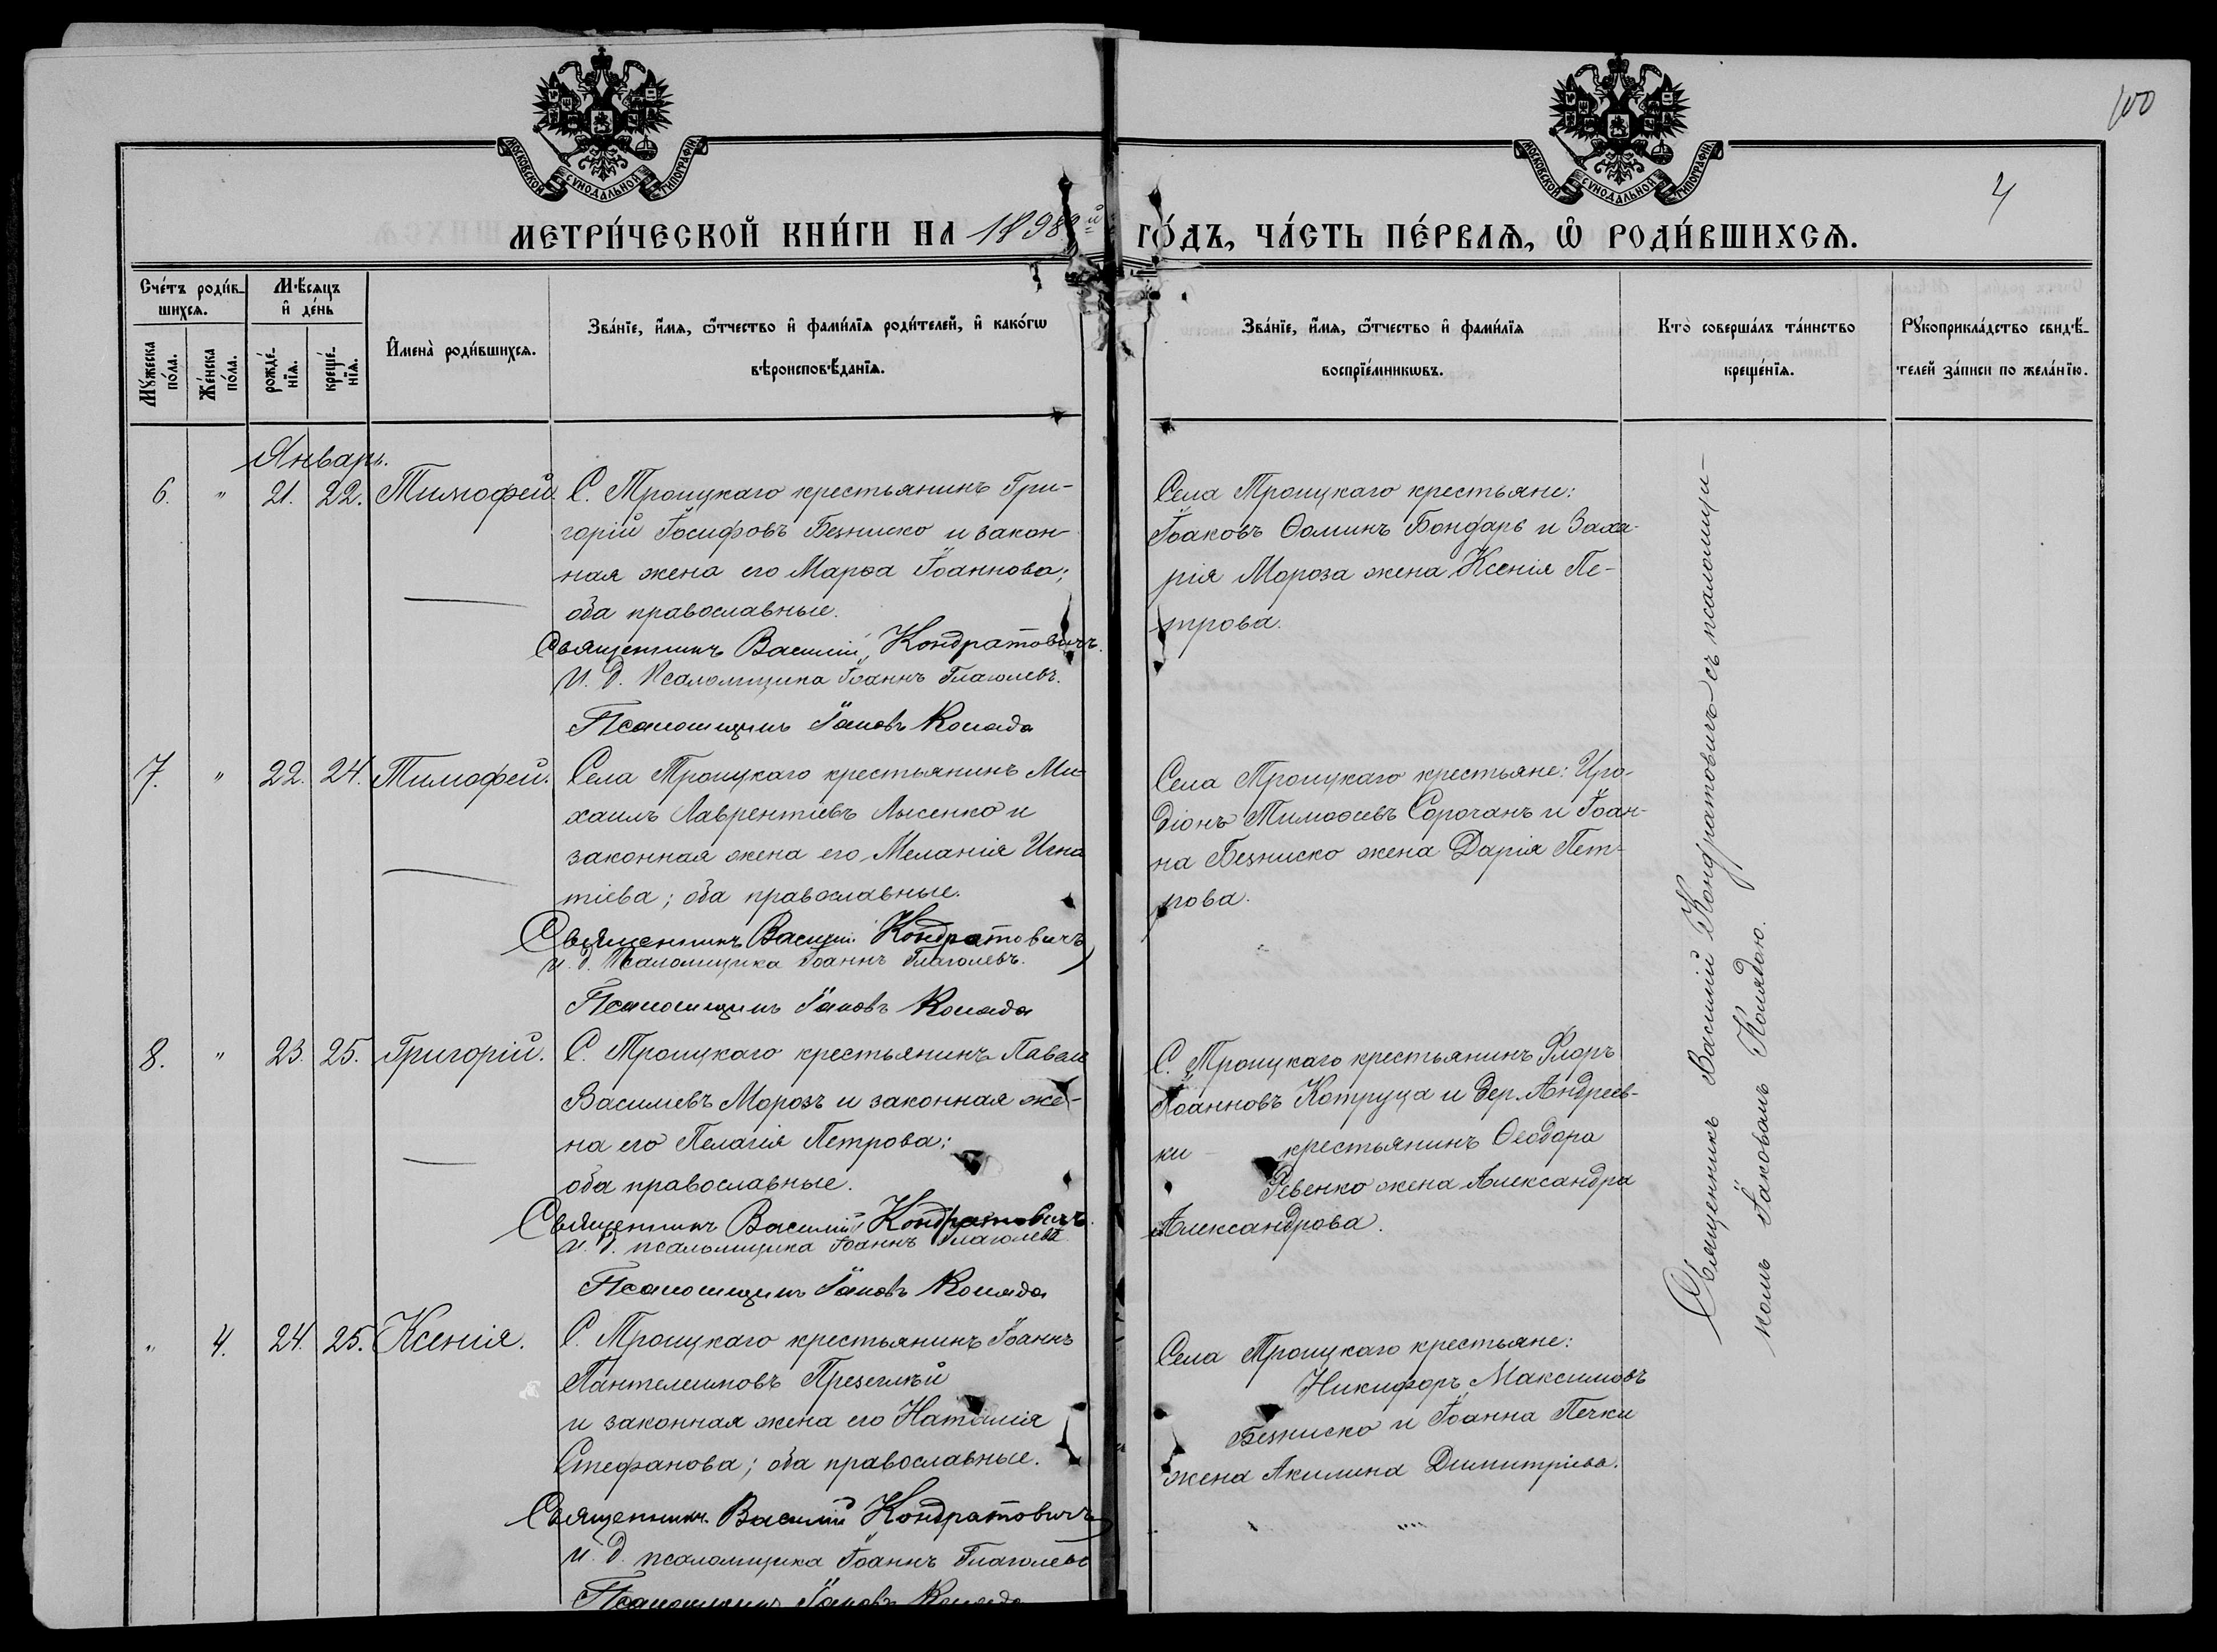 100
4
МОСКОВСКОЙ СѴНОДАЛЬНОЙ ТИПОГРАФІИ
МОСКОВСКОЙ СѴНОДАЛЬНОЙ ТИПОГРАФІИ
МЕТРИ́ЧЕСКОЙ КНИ́ГИ НА 1898й ГО́ДЪ, ЧА́СТЬ ПЕ́РВАѦ, Ѡ҆ РОДИ́ВШИХСѦ.
Сче́тъ роди́в-
шихсѧ.
Мꙋ́жеска по́ла.
Же́нска по́ла.
Мѣ́сѧцъ
и҆ де́нь
рожде́-нїѧ.
креще́-нїѧ.
И҆мена̀ роди́вшихсѧ.
Зва́нїе, и҆́мѧ, ѻ҆́тчество и҆ фами́лїѧ роди́телей, и҆ како́гѡ
вѣроисповѣ́данїѧ.
Зва́нїе, и҆́мѧ, ѻ҆́тчество и҆ фами́лїѧ
воспрїе́мникѡвъ.
Кто̀ соверша́лъ та́инство
креще́нїѧ.
Рꙋкоприкла́дство свидѣ́-
телей за́писи по жела́нїю.
Январь.
6. " 21. 22. Тимофей. С. Троицкаго крестьянинъ Гри-
горій Іосифовъ Безниско и закон-
ная жена его Марѳа Іоаннова;
оба православные.
Священникъ Василій Кондратовичъ.
И. Д. Псаломщика Іоаннъ Глаголевъ.
Псаломщикъ Іаковъ Коляда
Села Троицкаго крестьяне:
Іоаковъ Ѳоминъ Бондарь и Заха-
рія Мороза жена Ксенія Пе-
трова.
7. " 22. 24. Тимофей. Села Троицкаго крестьянинъ Ми-
хаилъ Лаврентіевъ Лысенко и
законная жена его Меланія Игна
тіева; оба православные.
Священникъ Василій Кондратовичъ
и. д. Псаломщика Іоаннъ Глаголевъ.
Псаломщикъ Іаковъ Коляда
Села Троицкаго крестьяне: Иро-
діонъ Тимоѳеевъ Сорочанъ и Іоан-
на Безниско жена Дарія Пет-
рова.
8. " 23. 25. Григорій. С. Троицкаго крестьянинъ Павелъ
Васильевъ Морозъ и законная же-
на его Пелагія Петрова;
оба православные.
Священникъ Василій Кондратовичъ.
и. д. псаломщика Іоаннъ Глаголевъ
Псаломщикъ Іаковъ Коляда
С. Троицкаго крестьянинъ Флоръ
Іоанновъ Котруца и дер. Андреев-
ки - крестьянинъ Ѳеодора
Ревенко жена Александра
Александрова.
" 4. 24. 25. Ксенія. С. Троицкаго крестьянинъ Іоаннъ
Пантелеимовъ
и законная жена его Наталія
Стефанова; оба православные.
Священникъ Василій Кондратовичъ
И. Д. псаломщика Іоаннъ Глаголевъ
Псаломщикъ Іаковъ Коляда
Села Троицкаго крестьяне:
Никифоръ Максимовъ
Безниско и Іоанна Печки
жена Акилина Димитріева.
Священникъ Василій Кондратовичъ съ псаломщи-
комъ Іаковомъ Колядою.